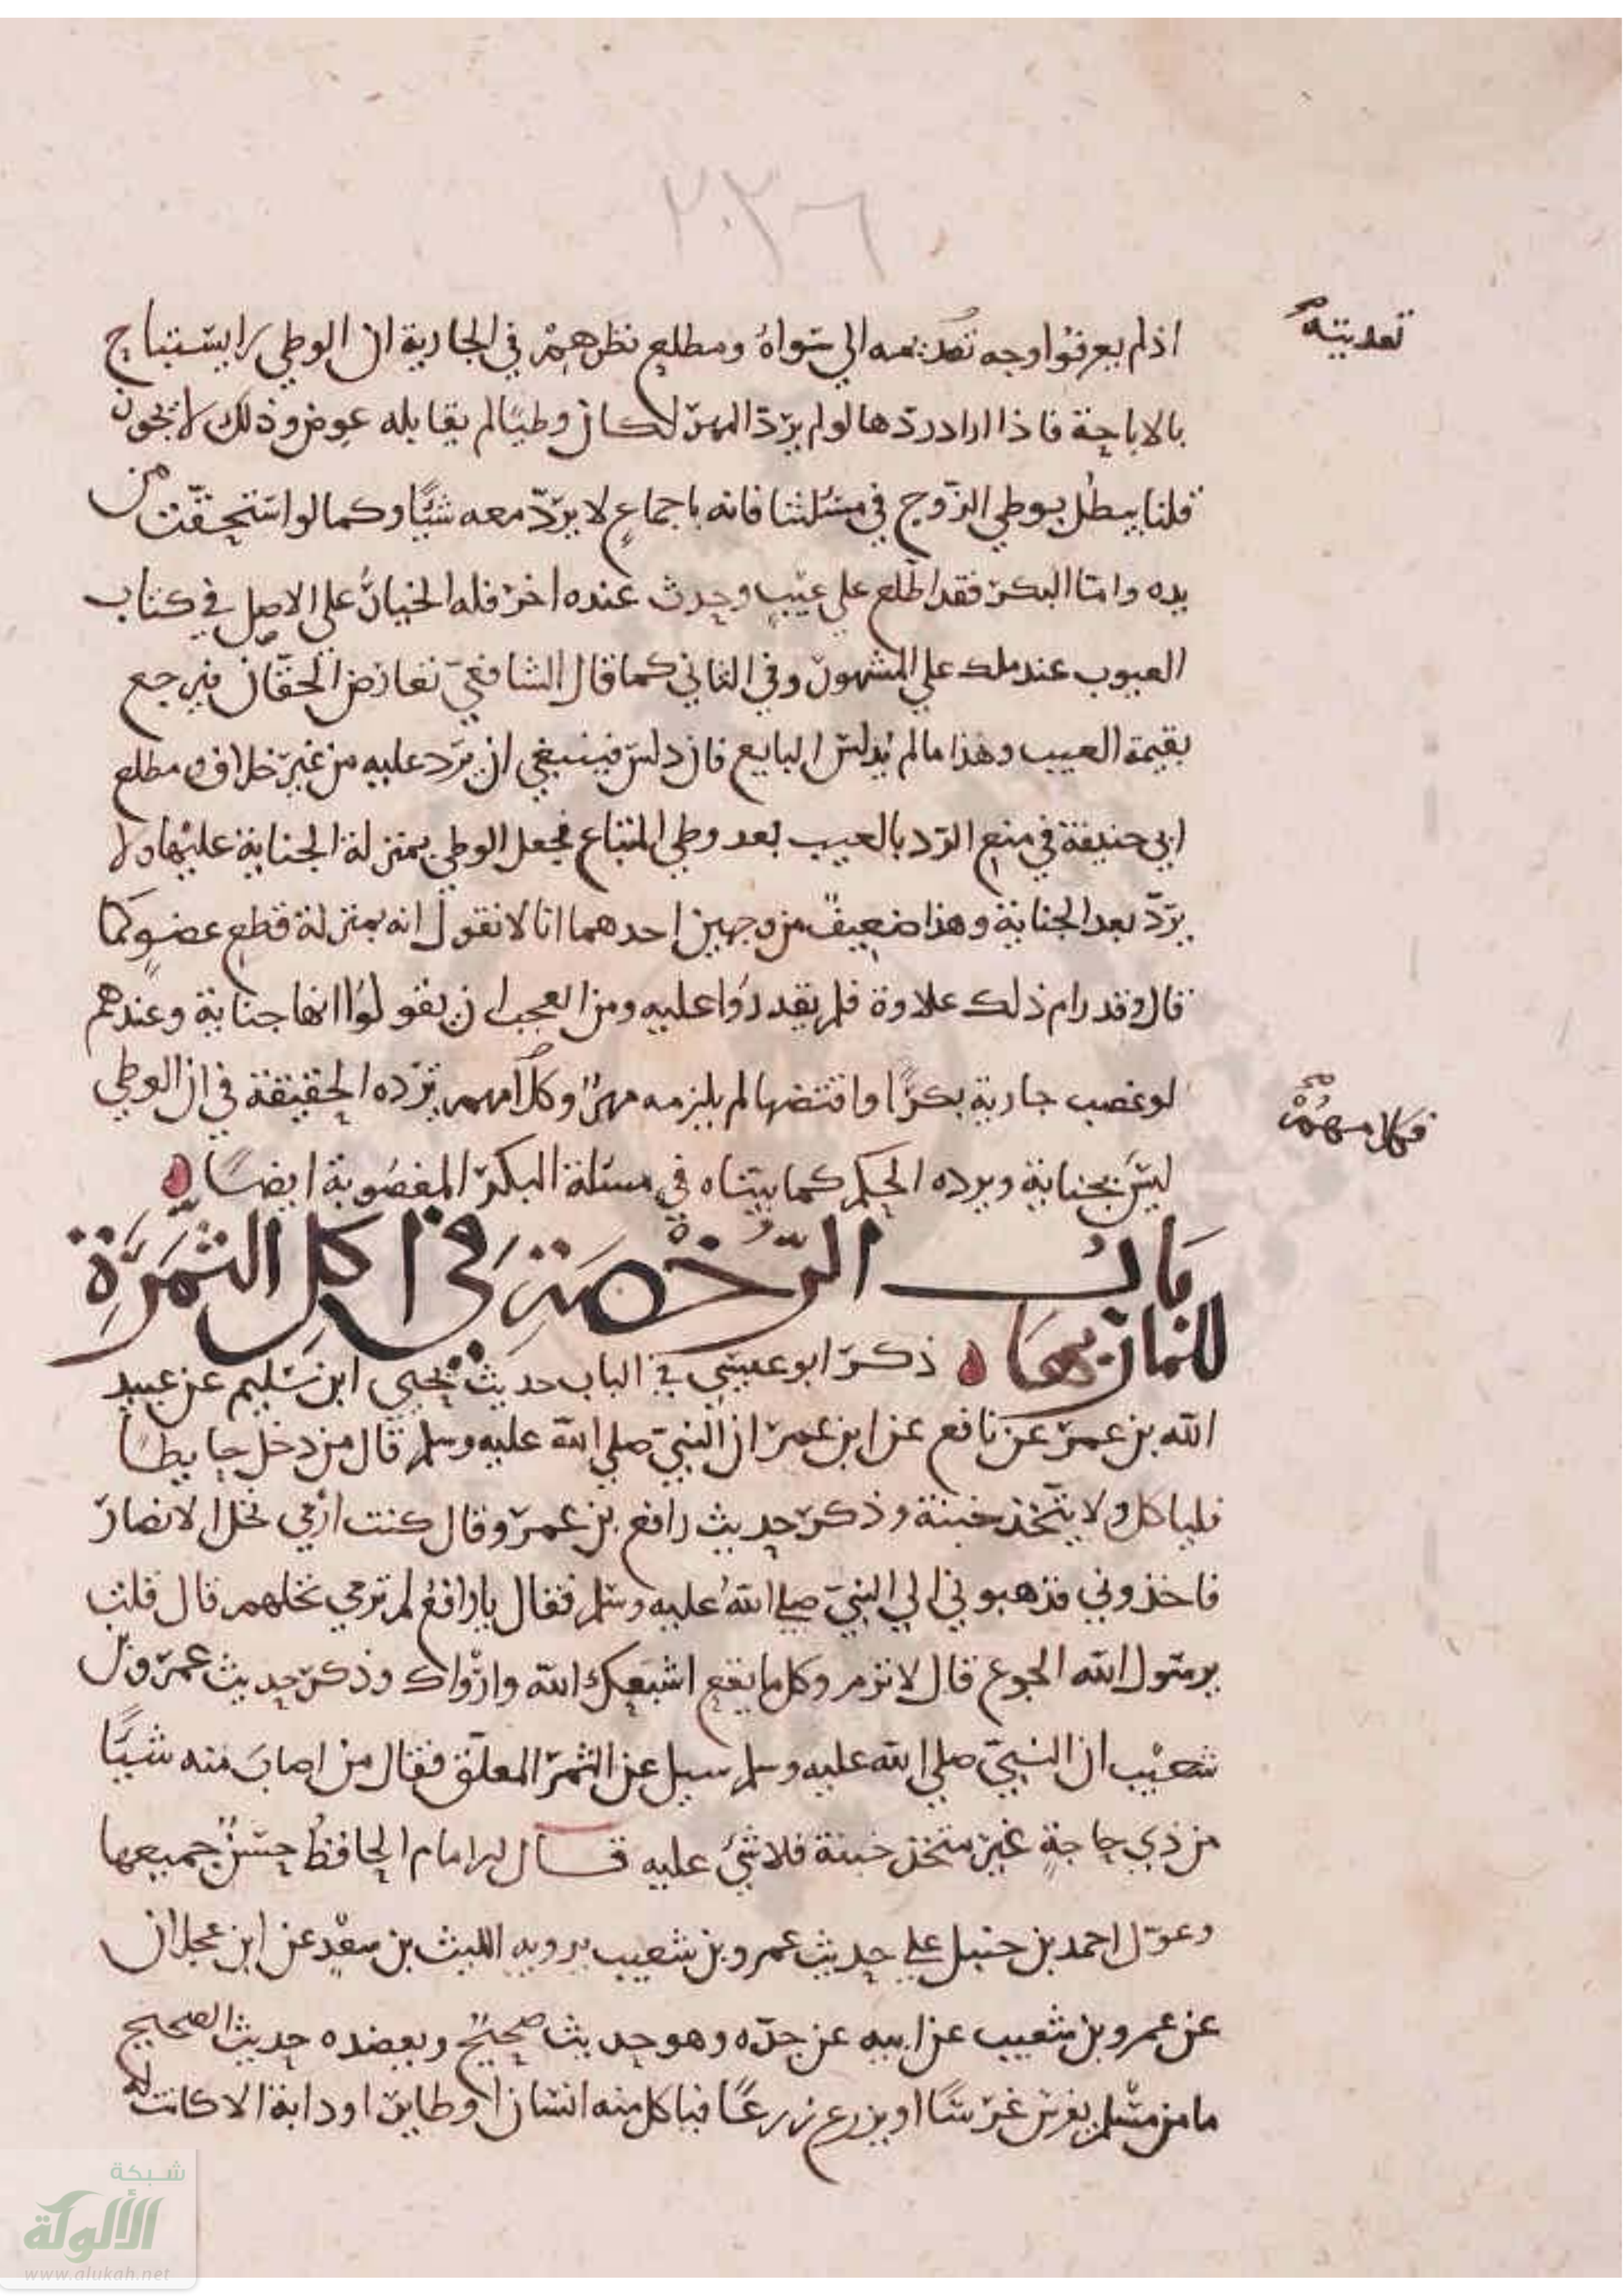 ٢٠٢٦
تعديته صح
اذ لم يعرفوا وجه تعديته الى سواه ومطلع نظرهم في الجارية ان الوطي لا يستباح
بالاباحة فاذا اراد ردها لو لم يرد المهر لكان وطيا لم يقابله عوض وذلك لا يجوز
قلنا يبطل بوطي الزوج في مسئلتنا فانه باجماع لا يرد معه شيا وكما لو استحقت من
يده واما البكر فقد اطلع على عيب وحدث عنده اخر فله الخيار على الاصل في كتاب
العيوب عند ملك على المشهور وفي الثاني كما قال الشافعي تعارض الحقان فيرجع
بقيمة العيب وهذا ما لم يدلس البايع فان دلس فينبغي ان ترد عليه من غير خلاف ومطلع
ابي حنيفة في منع الرد بالعيب بعد وطي المبتاع فجعل الوطي بمنزلة الجناية عليها ولا
يرد بعد الجناية وهذا ضعيف من وجهين احدهما انا لا نقول انه بمنزلة قطع عضو كما
قال وقد رام ذلك علاوة فلم يقدروا عليه ومن العجب ان يقولوا انها جناية وعندهم
لو غصب جارية بكرا وافتضها لم يلزمه مهر وكلامهم ترده الحقيقة في ان الوطي
فكلامهم صح
ليس بجناية ويرده الحكم كما بيناه في مسئلة البكر المغصوبة ايضا
باب الرخصة في اكل الثمرة
للمار بها ذكر ابو عيسى في الباب حديث يحيى ابن سليم عن عبيد
الله بن عمر عن نافع عن ابن عمر ان النبي صلى الله عليه وسلم قال من دخل حايطا
فلياكل ولا يتخذ خبنة وذكر حديث رافع بن عمر وقال كنت ارمي نخل الانصار
فاخذوني فذهبوا بي الى النبي صلى الله عليه وسلم فقال يا رافع لم ترمي نخلهم قال قلت
يرسول الله الجوع قال لا ترم وكل ما يقع اشبعك الله وارواك وذكر حديث عمرو بن
شعيب ان النبي صلى الله عليه وسلم سيل عن الثمر المعلق فقال من اصاب منه شيا
من ذي حاجة غير متخذ خبنة فلا شئ عليه قال الامام الحافظ حسن جميعها
وعول احمد بن حنبل على حديث عمرو بن شعيب يرويه الليث بن سعد عن ابن عجلان
عن عمرو بن شعيب عن ابيه عن جده وهو حديث صحيح ويعضده حديث الصحيح
ما من مسلم يغرس غرسا او يزرع زرعا فياكل منه انسان او طاير او دابة الا كانت له
شبكة
الألوكة
www.alukah.net